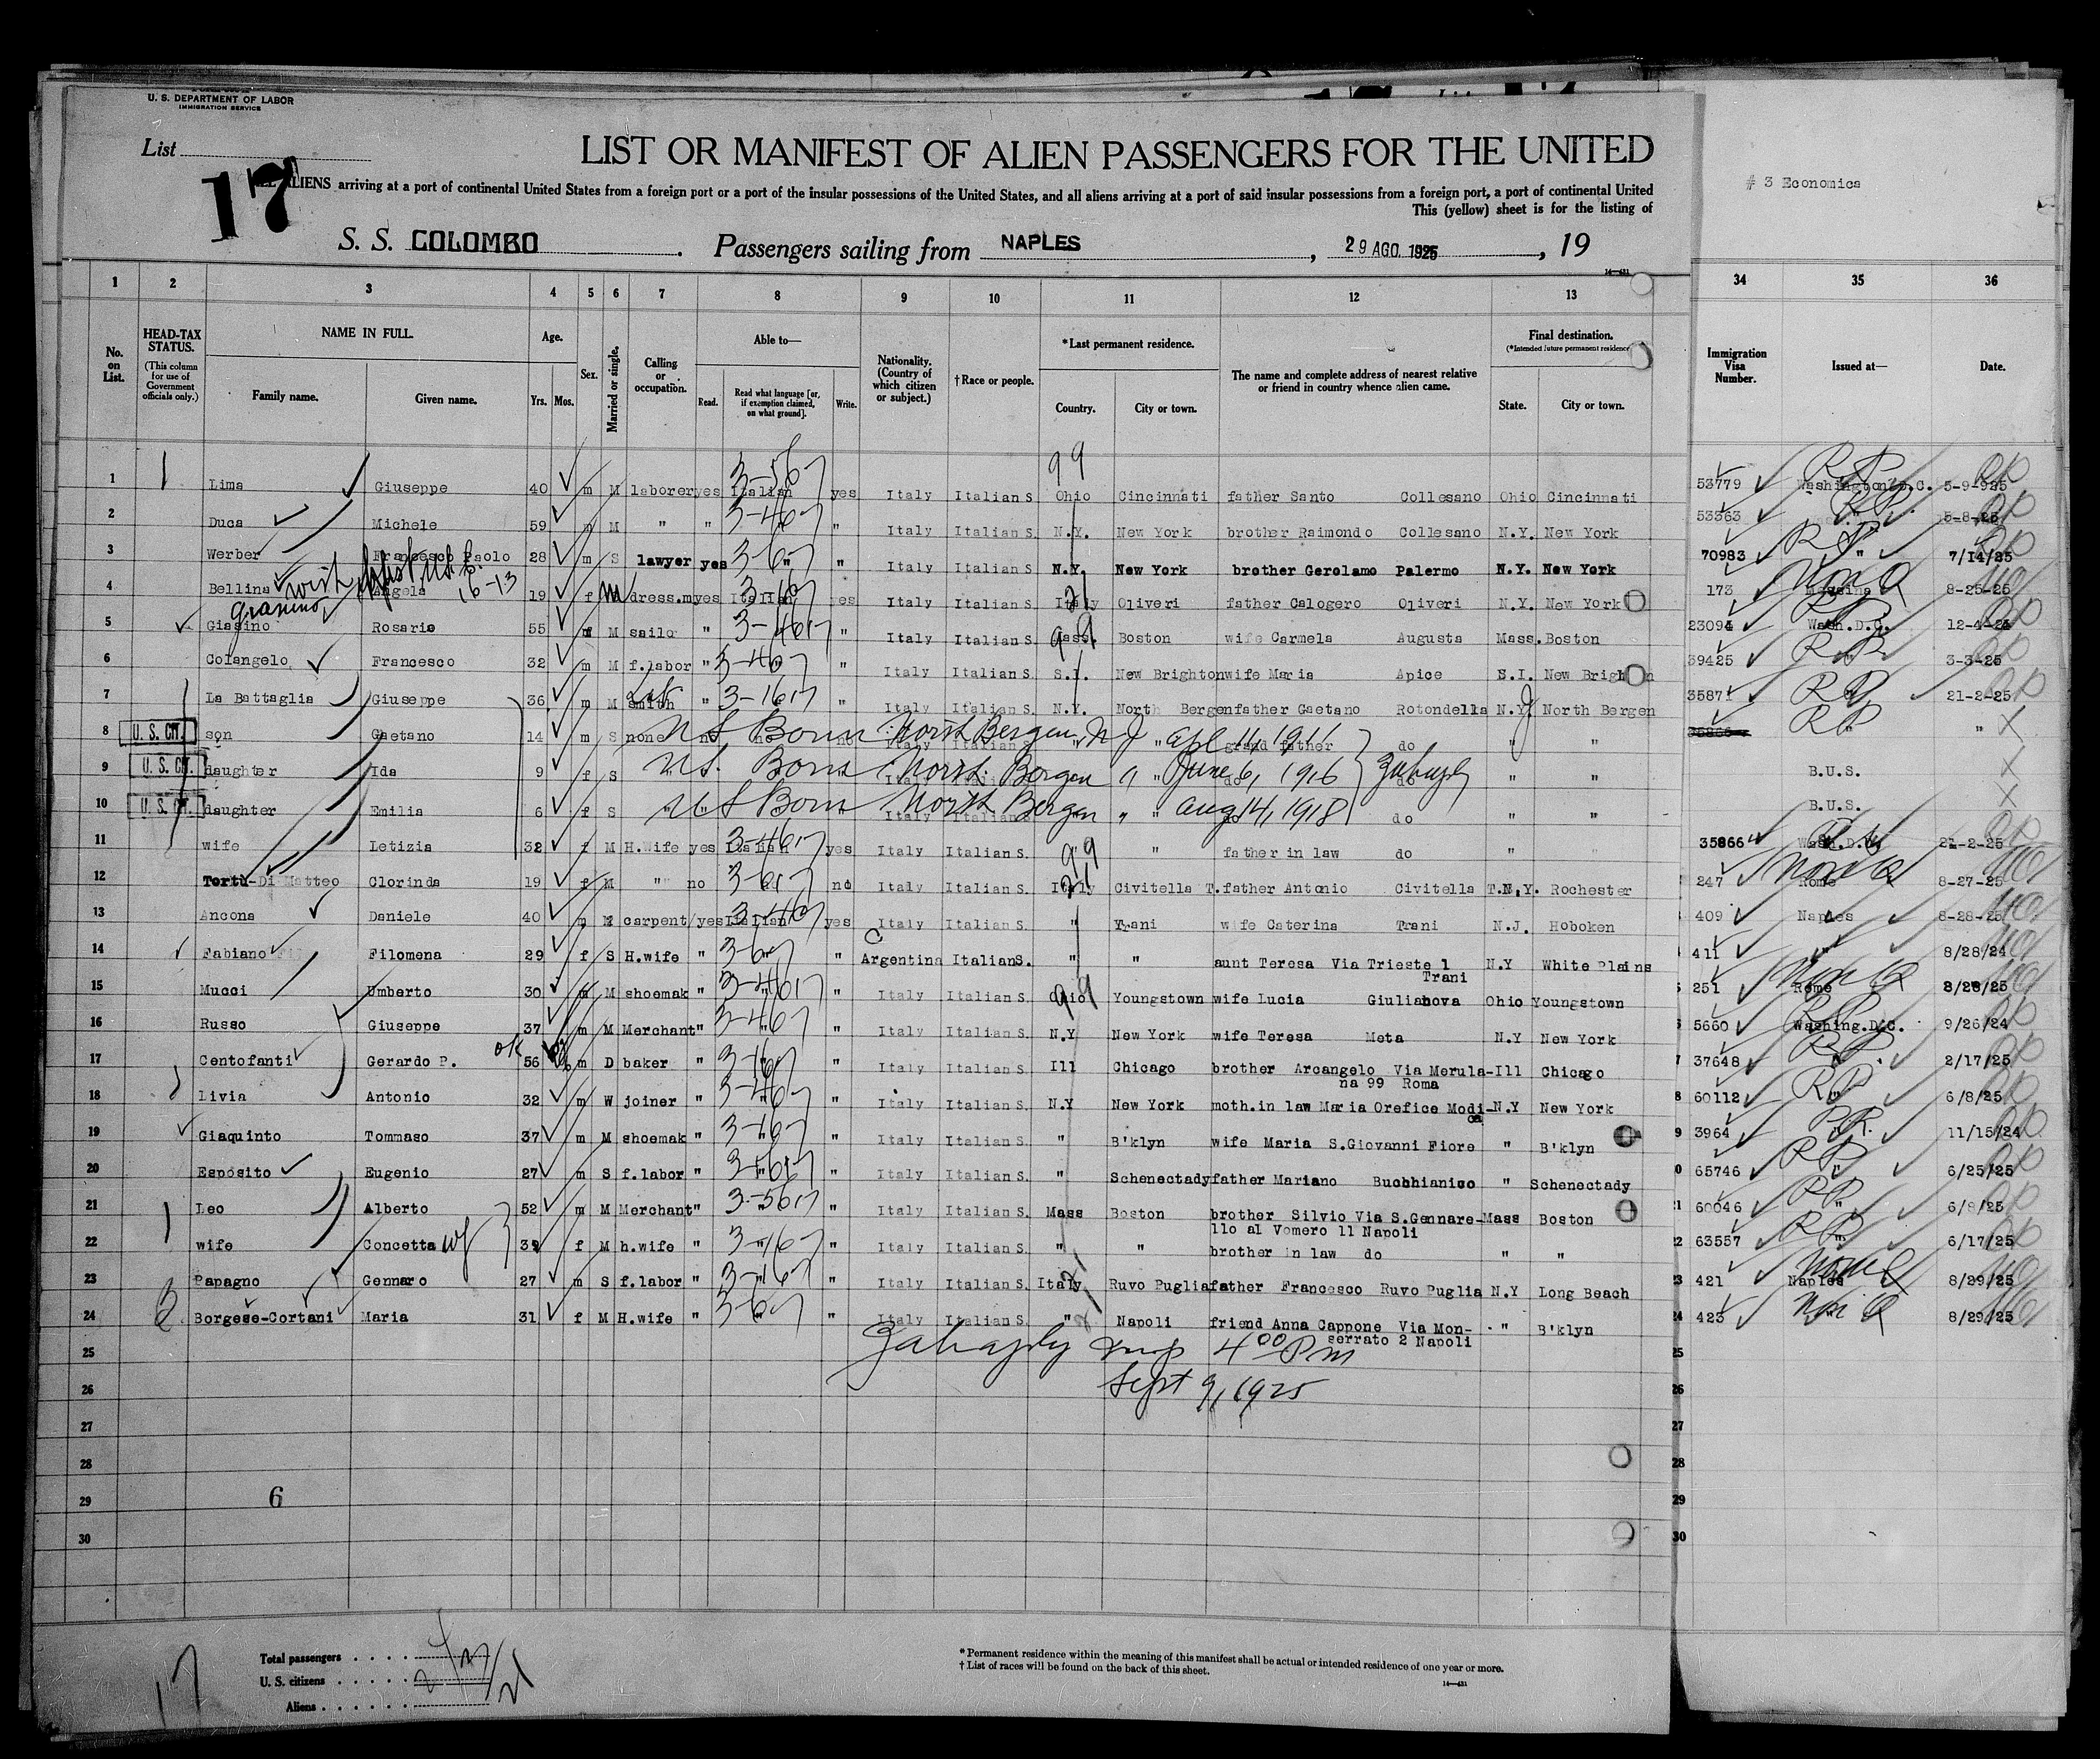 U. S. DEPARTMENT OF LABOR
IMMIGRATION SERVICE
List
17
LIST OR MANIFEST OF ALIEN PASSENGERS FOR THE UNITED
ALL ALIENS arriving at a port of continental United States from a foreign port or a port of the insular possessions of the United States, and all aliens arriving at a port of said insular possessions from a foreign port, a port of continental United
This (yellow) sheet is for the listing of
# 3 Economica
S. S. COLOMBO . Passengers sailing from NAPLES , 29 AGO. 1925 , 19
14—431
1 2 3 4 5 6 7 8 9 10 11 12 13 34 35 36
No. on List. HEAD-TAX STATUS. (This column for use of Government officials only.) NAME IN FULL. Family name. Given name. Age. Yrs. Mos. Sex. Married or single. Calling or occupation. Able to— Read. Read what language [or, if exemption claimed, on what ground]. Write. Nationality. (Country of which citizen or subject.) †Race or people. *Last permanent residence. Country. City or town. The name and complete address of nearest relative or friend in country whence alien came. Final destination. (*Intended future permanent residence) State. City or town. Immigration Visa Number. Issued at— Date.
99
1 Lima Giuseppe 40 m M laborer yes Italian yes Italy Italian S. Ohio Cincinnati father Santo Collesano Ohio Cincinnati 53779 RP Washington D.C. 5-9-925
2 Duca Michele 59 m M " " " Italy Italian S. N.Y. New York brother Raimondo Collesano N.Y. New York 53363 RP 5-8-25
3 Werber Francesco Paolo 28 m S lawyer yes " " Italy Italian S. N.Y. New York brother Gerolamo Palermo N.Y. New York 70983 RP " 7/14/25
16-13
4 Bellina Angela 19 f M dress.m yes Italian yes Italy Italian S. Italy Oliveri father Calogero Oliveri N.Y. New York 173 Non Q Messina 8-25-25
Gianino
5 Giasino Rosario 55 m M sailo " " Italy Italian S. Mass. Boston wife Carmela Augusta Mass. Boston 23094 RP Wash.D.C. 12-4-24
6 Colangelo Francesco 32 m M f.labor " " Italy Italian S. S.I. New Brighton wife Maria Apice S.I. New Brighton 39425 RP 3-3-25
7 La Battaglia Giuseppe 36 m M smith " " Italy Italian S. N.Y. North Bergen father Gaetano Rotondella N.Y. North Bergen 35871 RP 21-2-25
8 U. S. CIT. son Gaetano 14 m S none no no no Italy Italian US Born North Bergen, N J " apl 14, 1911 grand father do " " RP " " X
9 U. S. CIT. daughter Ida 9 f S Italy US. Born North Bergen " " June 6, 1916 do do " " B.U.S. X
10 U. S. CIT. daughter Emilia 6 f S Italy US Born North Bergen " " Aug 14, 1918 do do " " B.U.S. X
11 wife Letizia 32 f M H.Wife yes Italian yes Italy Italian S. " " father in law do " " 35866 Wash.D.C. 21-2-25
12 Tortù-Di Matteo Clorinda 19 f M " no no Italy Italian S. Italy Civitella T. father Antonio Civitella T. N.Y. Rochester 247 Non Q Rome 8-27-25
13 Ancona Daniele 40 m M carpent/ yes Italian yes Italy Italian S. " Trani wife Caterina Trani N.J. Hoboken 409 Naples 8-28-25
14 Fabiano Filomena 29 f S H.wife " " Argentina Italian S. " " aunt Teresa Via Trieste 1 Trani N.Y White Plains 411 " 8/28/24
15 Mucci Umberto 30 m M shoemak " " " Italy Italian S. Ohio Youngstown wife Lucia Giulianova Ohio Youngstown 251 Non Q Rome 8/28/25
16 Russo Giuseppe 37 m M Merchant " " " Italy Italian S. N.Y New York wife Teresa Meta N.Y New York 5660 RP Washing.D.C. 9/26/24
17 Centofanti Gerardo P. OK 56 m D baker " " " Italy Italian S. Ill Chicago brother Arcangelo Via Merula- Ill Chicago 37648 RP 2/17/25
na 99 Roma
18 Livia Antonio 32 m W joiner " " " Italy Italian S. N.Y New York moth.in law Maria Orefice Modi- N.Y New York 60112 RP " 6/8/25
ca
19 Giaquinto Tommaso 37 m M shoemak " " " Italy Italian S. " B'klyn wife Maria S.Giovanni Fiore " B'klyn 3964 RP. " 11/15/24
20 Esposito Eugenio 27 m S f.labor " " " Italy Italian S. " Schenectady father Mariano Bucchianico " Schenectady 65746 RP " 6/25/25
21 Leo Alberto 52 m M Merchant " " " Italy Italian S. Mass Boston brother Silvio Via S.Gennare- Mass Boston 60046 RP " 6/8/25
llo al Vomero 11 Napoli
22 wife Concetta wf 39 f M h.wife " " " Italy Italian S. " " brother in law do " " 63557 RP " 6/17/25
23 Papagno Gennaro 27 m S f.labor " " " Italy Italian S. Italy Ruvo Puglia father Francesco Ruvo Puglia N.Y Long Beach 421 Non Q Naples 8/29/25
24 Borgese-Cortani Maria 31 f M H.wife " " " Italy Italian S. " Napoli friend Anna Cappone Via Mon- " B'klyn 423 Non Q 8/29/25
serrato 2 Napoli
25 4 00 PM 25
26 Sept 9, 1925 26
27 27
28 28
29 6 29
30 30
17
Total passengers
U. S. citizens
Aliens
*Permanent residence within the meaning of this manifest shall be actual or intended residence of one year or more.
†List of races will be found on the back of this sheet.
14—431